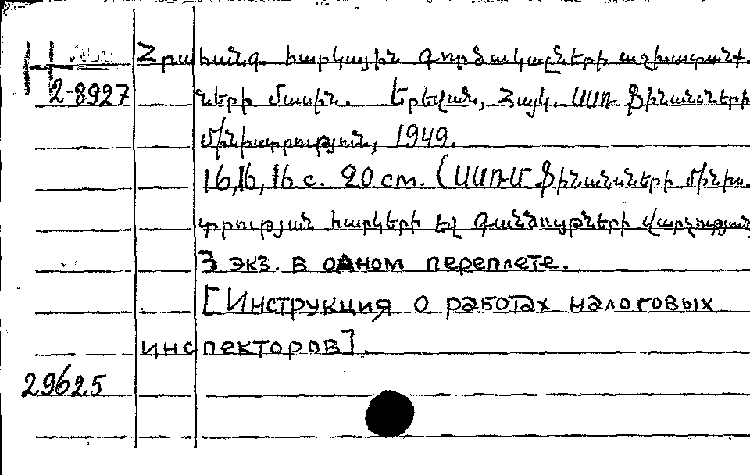 Հրահանգ հարկային գործակալների աշխատանք-
2-8927 ների մասին. Երևան, Հայկ. ՍՍՌ Ֆինանսների
մինիստրություն, 1949.
16, 16, 16 с. 20 см. (ՍՍՌՄ Ֆինանսների մինիս-
տրության հարկերի եվ գանձույթների վարչություն
3 экз. в одном переплете.
[Инструкция о работах налоговых
инспекторов].
29625